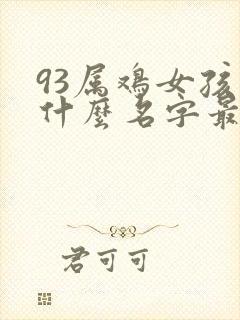 93属鸡女孩
什麼名字最
君可可